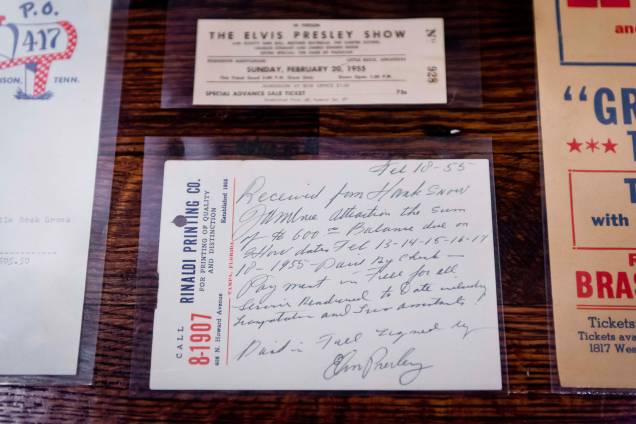 P.O.
417
SON, TENN.
tle Rock Grove
505.50
IN PERSON
THE ELVIS PRESLEY SHOW
ROBINSON AUDITORIUM
LITTLE ROCK, ARKANSAS
SUNDAY, FEBRUARY 20, 1955
SPECIAL ADVANCE SALE TICKET
75c
No. 928
CALL
8-1907
RINALDI PRINTING CO.
FOR PRINTING OF QUALITY
AND DISTINCTION
408 N. Howard Avenue
TAMPA, FLORIDA
Feb 18-55
Received from Hank Snow
Jamboree Attraction the sum
of $ 600 00 Balance due on
Show dates Feb 13-14-15-16-17
18-1955 - Paid by Check -
Payment in Full for all
Service Rendered to Date including
Transportation and Two assistants
Paid in Full Signed by
Elvis Presley
and
"GR
T
with
BRAS
Tickets
Tickets ava
1817 Wes